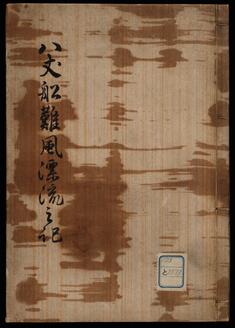 八丈船難風漂流之記